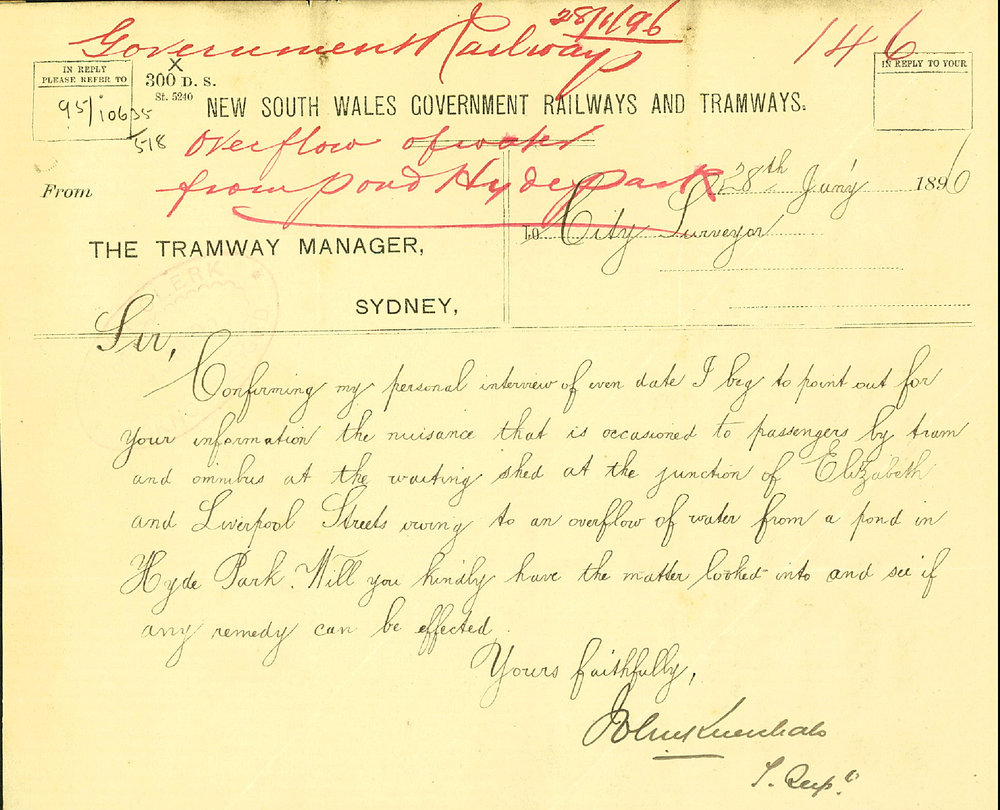 28/1/96
Government Railway
146
IN REPLY
PLEASE REFER TO
95/10635
/518
x
300 D. S.
St. 5240
IN REPLY TO YOUR
NEW SOUTH WALES GOVERNMENT RAILWAYS AND TRAMWAYS.
Overflow of water
from pond Hyde Park
From
28th Jany 1896
THE TRAMWAY MANAGER,
To City Surveyor
SYDNEY,
CLERK
Sir,
Confirming my personal interview of even date I beg to point out for
your information the nuisance that is occasioned to passengers by tram
and omnibus at the waiting shed at the junction of Elizabeth
and Liverpool Streets owing to an overflow of water from a pond in
Hyde Park. Will you kindly have the matter looked into and see if
any remedy can be effected.
Yours faithfully,
John